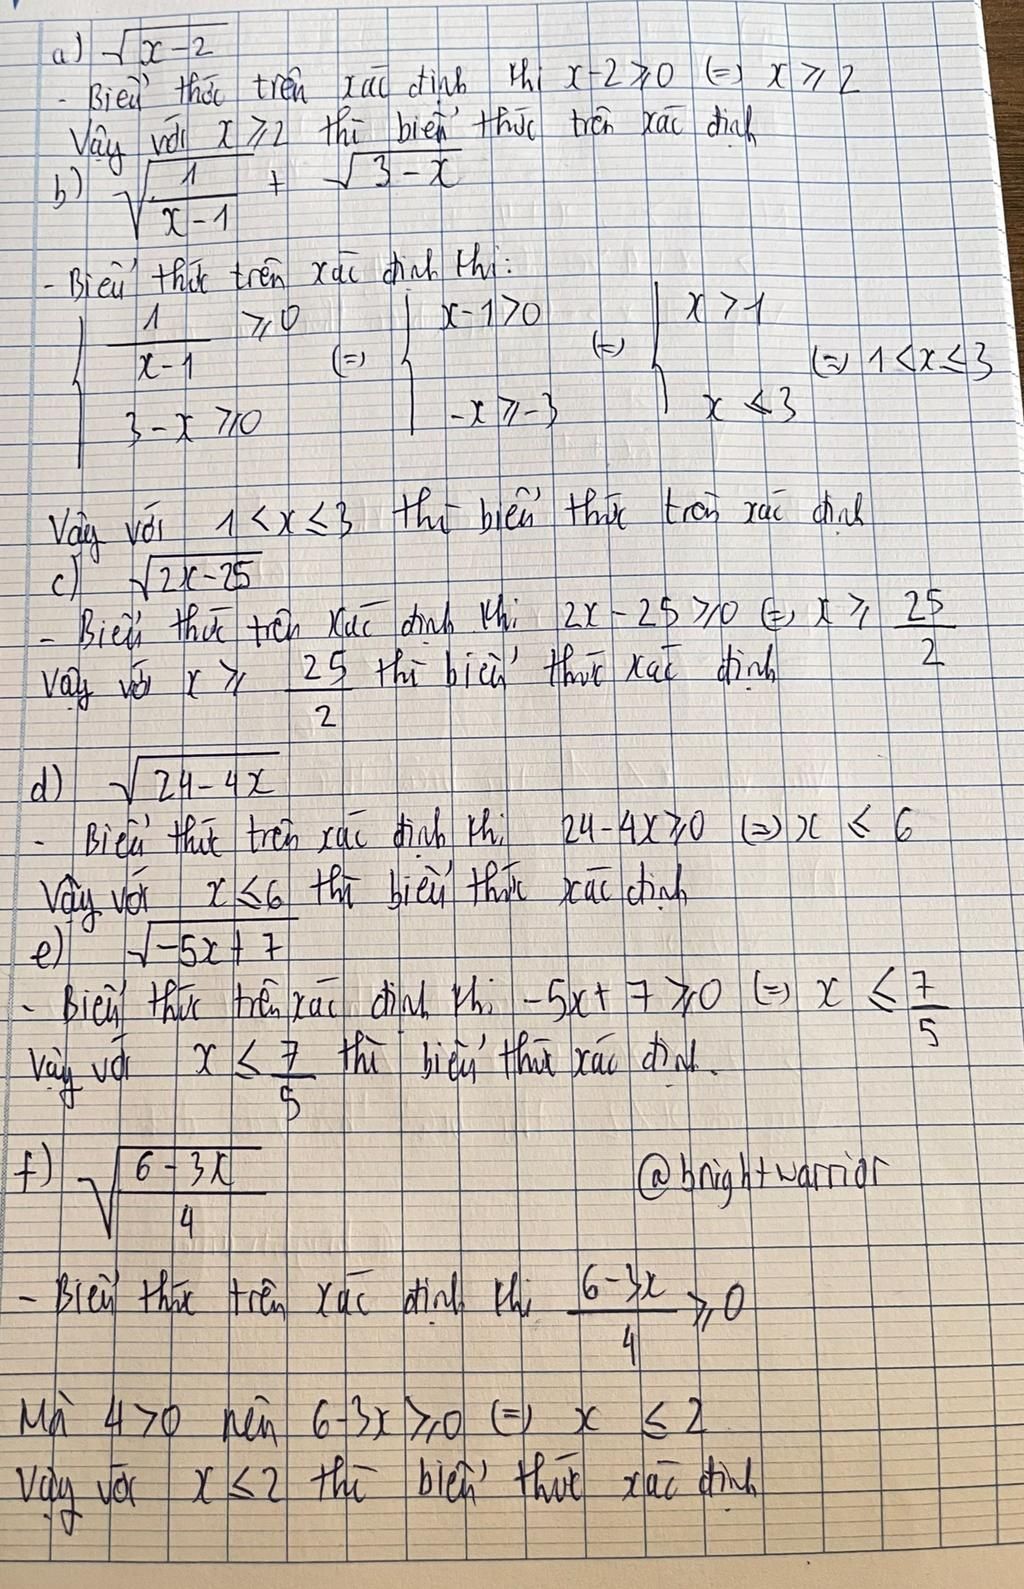 a) √(x-2)
- Biểu thức trên xác định khi x-2 ≥ 0 (=) x ≥ 2
Vậy với x ≥ 2 thì biểu thức trên xác định
b) √(1/(x-1)) + √(3-x)
- Biểu thức trên xác định khi:
{ 1/(x-1) ≥ 0 (=) { x-1 > 0 (=) { x > 1 (=) 1 < x ≤ 3
3-x ≥ 0 -x ≥ -3 x ≤ 3
Vậy với 1 < x ≤ 3 thì biểu thức trên xác định
c) √(2x-25)
- Biểu thức trên xác định khi 2x-25 ≥ 0 (=) x ≥ 25/2
Vậy với x ≥ 25/2 thì biểu thức xác định
d) √(24-4x)
- Biểu thức trên xác định khi 24-4x ≥ 0 (=) x ≤ 6
Vậy với x ≤ 6 thì biểu thức xác định
e) √(-5x+7)
- Biểu thức trên xác định khi -5x+7 ≥ 0 (=) x ≤ 7/5
Vậy với x ≤ 7/5 thì biểu thức xác định.
f) √((6-3x)/4)
@brightwarrior
- Biểu thức trên xác định khi (6-3x)/4 ≥ 0
Mà 4 > 0 nên 6-3x ≥ 0 (=) x ≤ 2
Vậy với x ≤ 2 thì biểu thức xác định